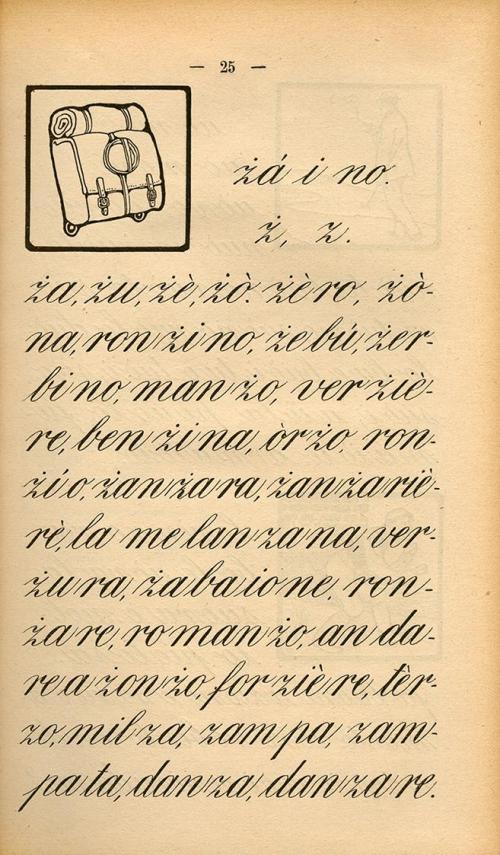 — 25 —
żá i no.
ż, z.
ża, żu, żè, żò. żè ro, żò-
na, ron żi no, że bú, żer-
bi no, man żo, ver żiè-
re, ben żi na, òr żo, ron-
żí o, żan ża ra, żan ża riè-
rè, la me lan za na, ver-
żu ra, ża ba io ne, ron-
ża re, ro man żo, an da-
re a żon żo, for ziè re, tèr-
zo, mil za, zam pa, zam-
pa ta, dan za, dan za re.